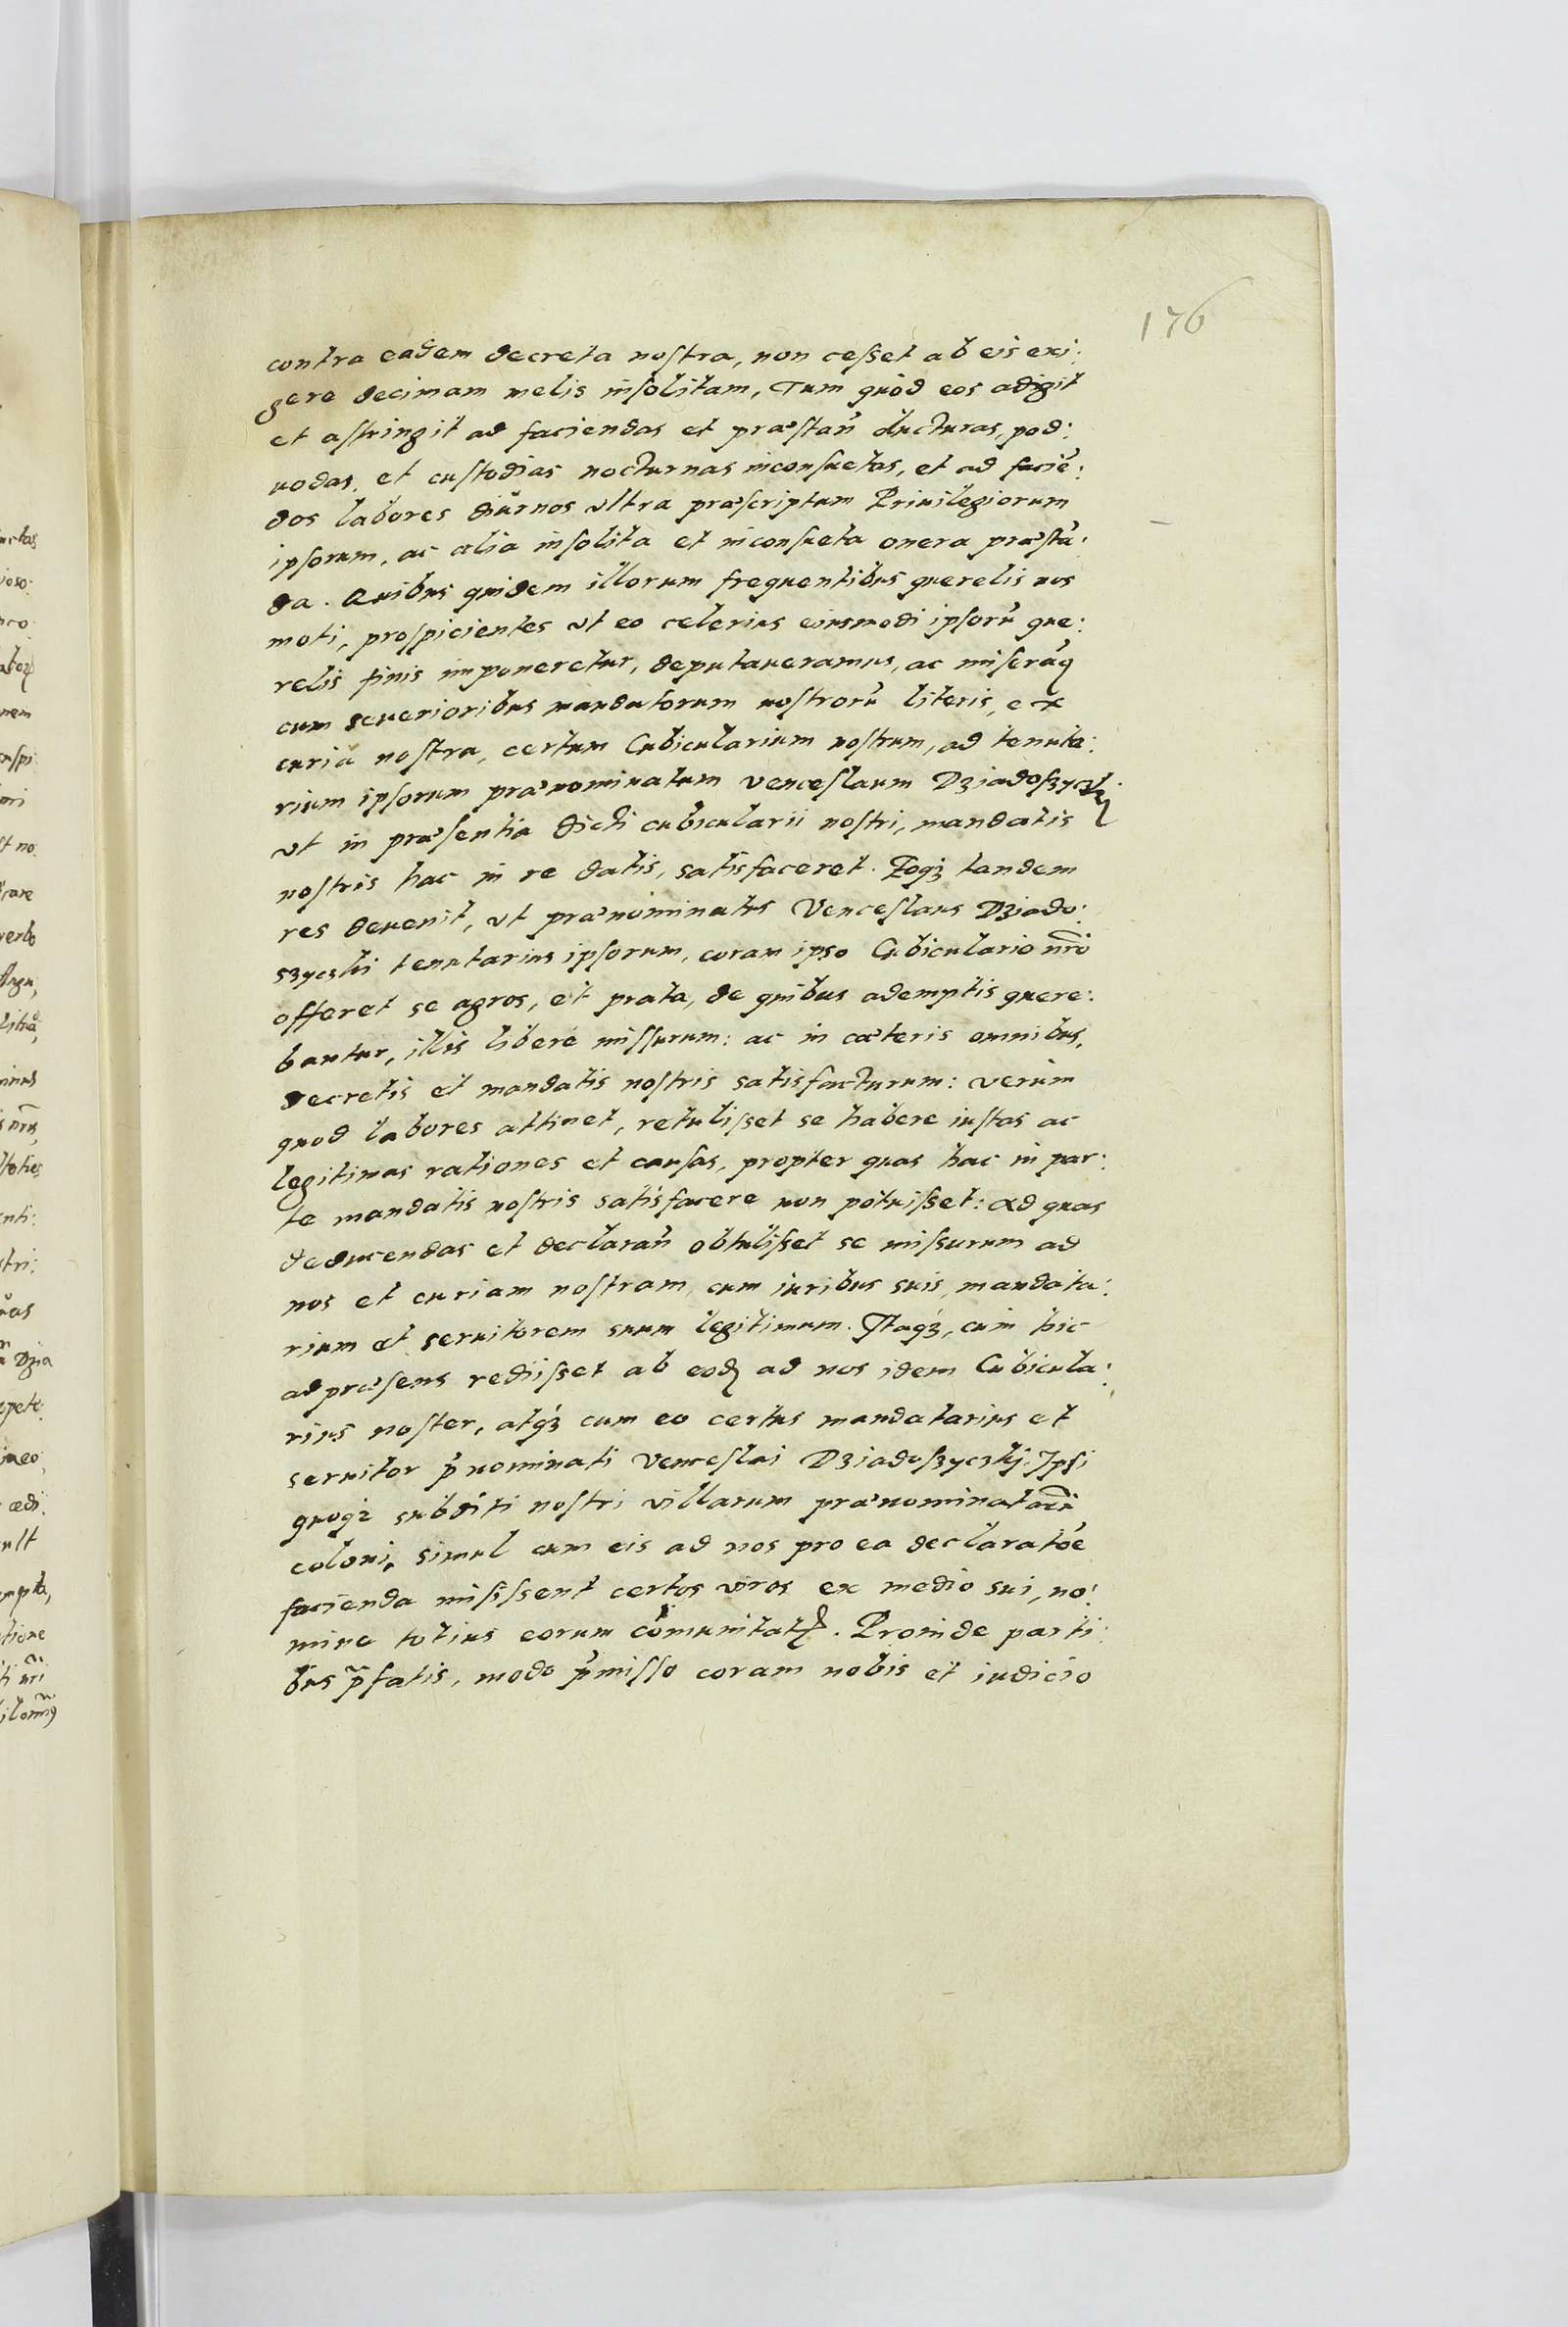 176
contra eadem decreta nostra, non cesset ab eis exi:
gere decimam melis insolitam, Tum quòd eos adigit
et astringit ad faciendas et præstañ ducturas, pod:
uodas, et custodias nocturnas inconsuetas, et ad facie͂:
dos labores diurnos vltra præscriptum Priuilegiorum
ipsorum, ac alia insolita et inconsueta onera præstã:
da. Quibus quidem illorum frequentibus querelis nos
moti, prospicientes vt eo celerius eiusmodi ipsorũ que:
relis finis imponeretur, deputaueramus, ac miserãq
cum seuerioribus mandatorum nostrorũ literis, ex
curia nostra, certum Cubicularium nostrum, ad tenuta:
rium ipsorum prænominatum Venceslaum Dziadoszyczki
vt in præsentia dicti cubicularii nostri, mandatis
nostris hac in re datis, satisfaceret. Eoqꝫ tandem
res deuenit, vt prænominatus Venceslaus Dziado:
szyczki tenutarius ipsorum, coram ipso Cubiculario nr̃o
offeret se agros, et prata, de quibus ademptis quere:
bantur, illis liberè missurum: ac in cæteris omnibus,
decretis et mandatis nostris satisfacturum: verùm
quod labores attinet, retulisset se habere iustas ac
legitimas rationes et causas, propter quas hac in par:
te mandatis nostris satisfacere non potuisset: ad quas
deducendas et declarañ obtulisset se missurum ad
nos et curiam nostram, cum iuribus suis, mandata:
rium et seruitorem suum legitimum. Itaqꝫ, cùm hic
ad præsens rediisset ab eodꝫ ad nos idem Cubicula:
rius noster, atqꝫ cum eo certus mandatarius et
seruitor p̃nominati Venceslai Dziadoszyczkj. Ipsi
quoqꝫ subditi nostri villarum prænominatarũ
coloni, simul cum eis ad nos pro ea declaratõe
facienda misissent certos viros ex medio sui, no:
mine totius eorum cõmunitatꝭ. Proinde parti:
bus p̃fatis, modo p̃misso coram nobis et iudicio